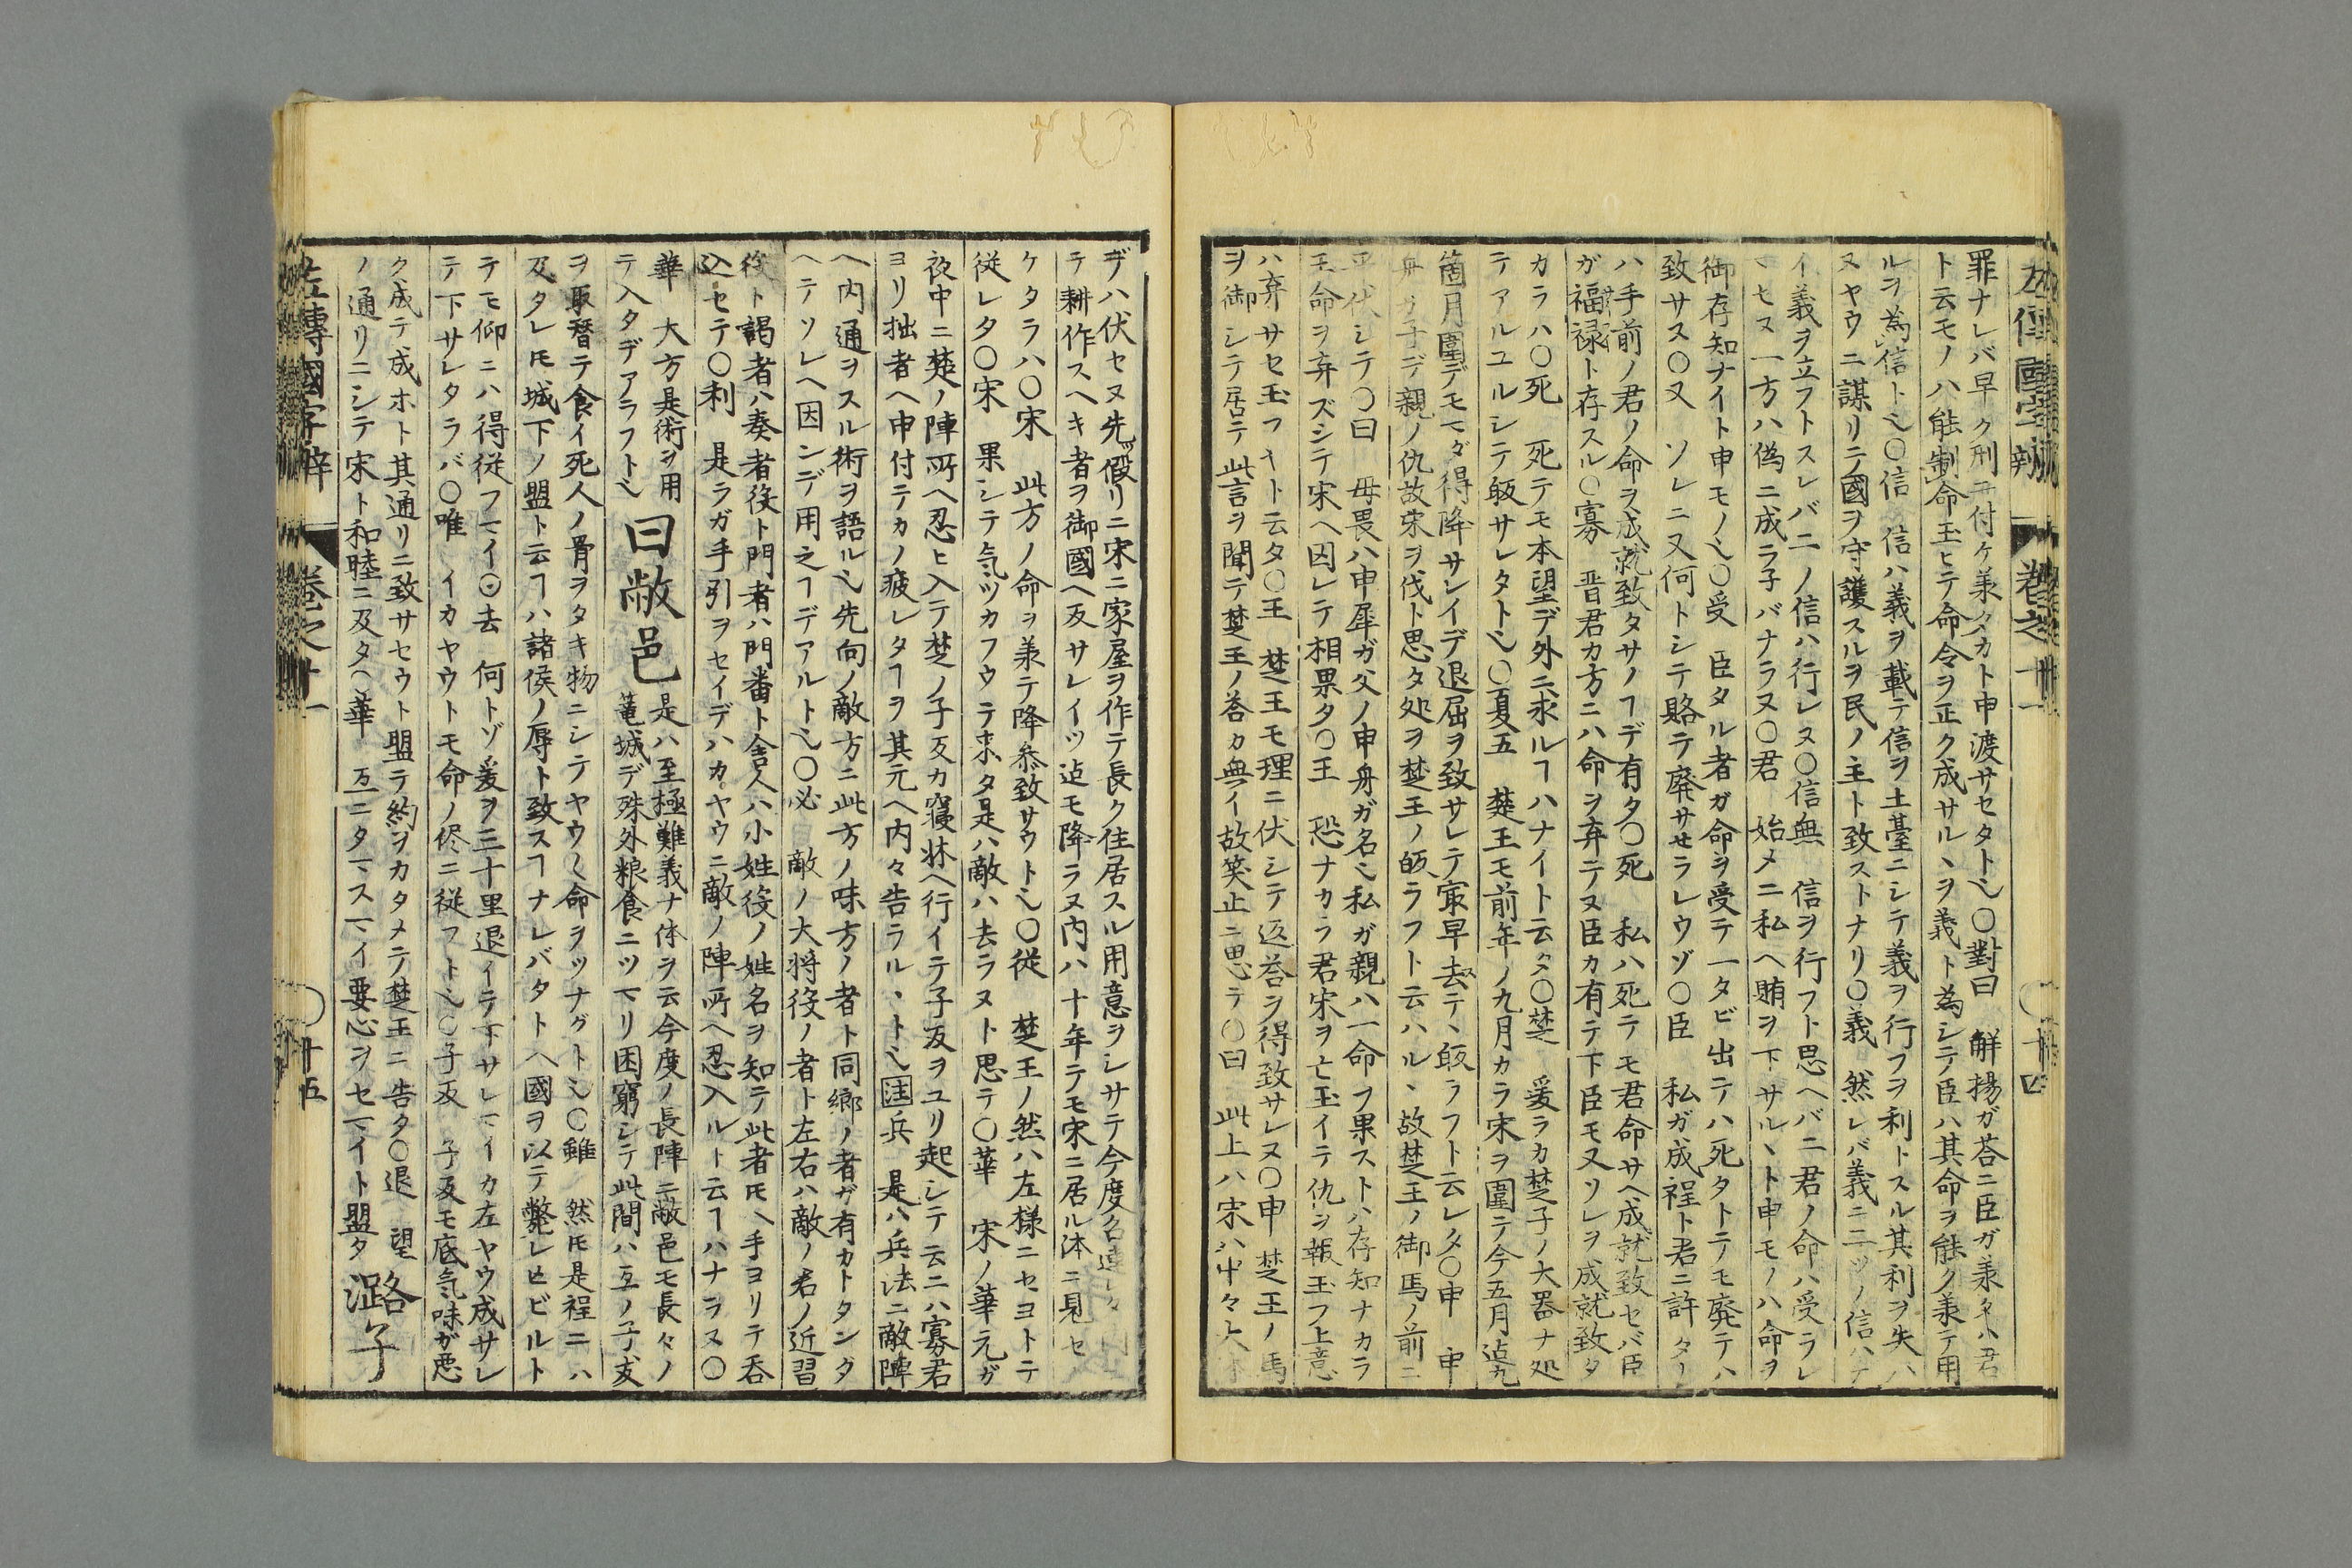 左傳國字辯 卷之十一 ○十四
罪ナレバ早ク刑ニ付ケ兼タカト申渡サセタトヘ○對曰 解揚ガ荅ニ臣ガ兼タハ君
ト云モノハ能制命玉ヒテ命令ヲ正ク成サル丶ヲ義ト為シテ臣ハ其命ヲ能ク兼テ用
ルヲ為信トヘ○信 信ハ義ヲ載テ信ヲ土䑓ニシテ義ヲ行フヲ利トスル其利ヲ失ハ
ヌヤウニ謀リテ國ヲ守護スルヲ民ノ主ト致ストナリ○義 然レバ義ニ二ツノ信ハナ
イ義ヲ立フトスレバ二ノ信ハ行レヌ○信無 信ヲ行フト思ヘバ二君ノ命ハ受ラレ
マセヌ一方ハ偽ニ成ラ子バナラヌ○君 始メニ私ヘ賄ヲ下サル丶ト申モノハ命ヲ
御存知ナイト申モノヘ○受 臣タル者ガ命ヲ受テ一タビ出テハ死タトテモ廃テハ
致サヌ○又 ソレニ又何トシテ賂テ廃サセラレウゾ○臣 私ガ成程ト君ニ許タ
ハ手前ノ君ノ命ヲ成就致タサノヿデ有タ○死 私ハ死テモ君命サヘ成就致セバ臣
ガ福禄ト存スル○寡 晋君カ方ニハ命ヲ弃テヌ臣カ有テ下臣モ又ソレヲ成就致タ
カラハ○死 死テモ本望デ外ニ求ルヿハナイト云タ○楚 爰ラカ楚子ノ大器ナ処
テアルユルシテ皈サレタトヘ○夏五 楚王モ前年ノ九月カラ宋ヲ圍テ今五月迠九
箇月圍デモマダ得降サレイデ退屈ヲ致サレテ寂早去テ丶皈ラフト云レタ○申 申
舟ガ子デ親ノ仇故宋ヲ伐ト思タ処ヲ楚王ノ皈ラフト云ハル丶故楚王ノ御馬ノ前ニ
平伏シテ○曰 毋畏ハ申犀ガ父ノ申舟ガ名ヘ私ガ親ハ一命フ果ストハ存知ナカラ
王命ヲ弃ズシテ宋ヘ因レテ相果タ○王 恐ナカラ君宋ヲ亡玉イテ仇ヲ報玉フ上意
ハ弃サセ玉フヤト云タ○王 楚王モ理ニ伏シテ返荅ヲ得致サレヌ○申 楚王ノ馬
ヲ御シテ居テ此言ヲ聞テ楚王ノ荅カ無イ故笑止ニ思テ○曰 此上ハ宋ハ中々大
デハ伏セヌ先假リニ宋ニ家屋ヲ作テ長ク住居スル用意ヲシサテ今度召連レタ
テ耕作スヘキ者ヲ御國ヘ反サレイツ迠モ降ラヌ内ハ十年テモ宋ニ居ル体ニ見セ
ケタラハ○宋 此方ノ命ヲ兼テ降参致サウトヘ○従 楚王ノ然ハ左様ニセヨトテ
従レタ○宋 果シテ気ヅカフウテ来タ是ハ敵ハ去ラヌト思テ○華 宋ノ華元ガ
夜中ニ楚ノ陣所ヘ忍ヒ入テ楚ノ子反カ寝牀ヘ行イテ子反ヲユリ起シテ云ニハ寡君
ヨリ拙者ヘ申付テカノ疲レタヿヲ其元ヘ内々告ラル丶トヘ注兵 是ハ兵法ニ敵陣
ヘ内通ヲスル術ヲ語ルヘ先向ノ敵方ニ此方ノ味方ノ者ト同郷ノ者ガ有カトタンダ
ヘテソレヘ因ンデ用之ヿデアルトヘ○必 敵ノ大将役ノ者ト左右ハ敵ノ君ノ近習
役ト謁者ハ奏者役ト門者ハ門番ト舎人ハ小姓役ノ姓名ヲ知テ此者𪜈ヘ手ヨリテ呑
込セテ○利 是ラガ手引ヲセイデハカヤウニ敵ノ陣所ヘ忍入ルト云ヿハナラヌ○
華 大方是術ヲ用テ入タデアラフトヘ 曰敝邑 是ハ至極難義ナ体ヲ云今度ノ長陣ニ敝邑モ長々ノ
篭城デ殊外粮食ニツマリ困窮シテ此間ハ互ノ子共
ヲ取替テ食イ死人ノ骨ヲタキ物ニシテヤウ〱命ヲツナグトヘ○雖 然𪜈是程ニハ
及タレ𪜈城下ノ盟ト云ヿハ諸侯ノ辱ト致スヿナレバタトヘ國ヲ以テ斃レ𪜈ビルト
テモ仰ニハ得従フマイ○去 何トゾ爰ヲ三十里退イテ下サレマイカ左ヤウ成サレ
テ下サレタラバ○唯 イカヤウトモ命ノ侭ニ従フトヘ○子反 子反モ底気味ガ悪
ク成テ成ホト其通リニ致サセウト盟テ約ヲカタメテ楚王ニ告タ○退 望
ノ通リニシテ宋ト和睦ニ及タヘ華 互ニタマスマイ要心ヲセマイト盟タ 潞子
左傳國字辯 卷之十一 ○十五